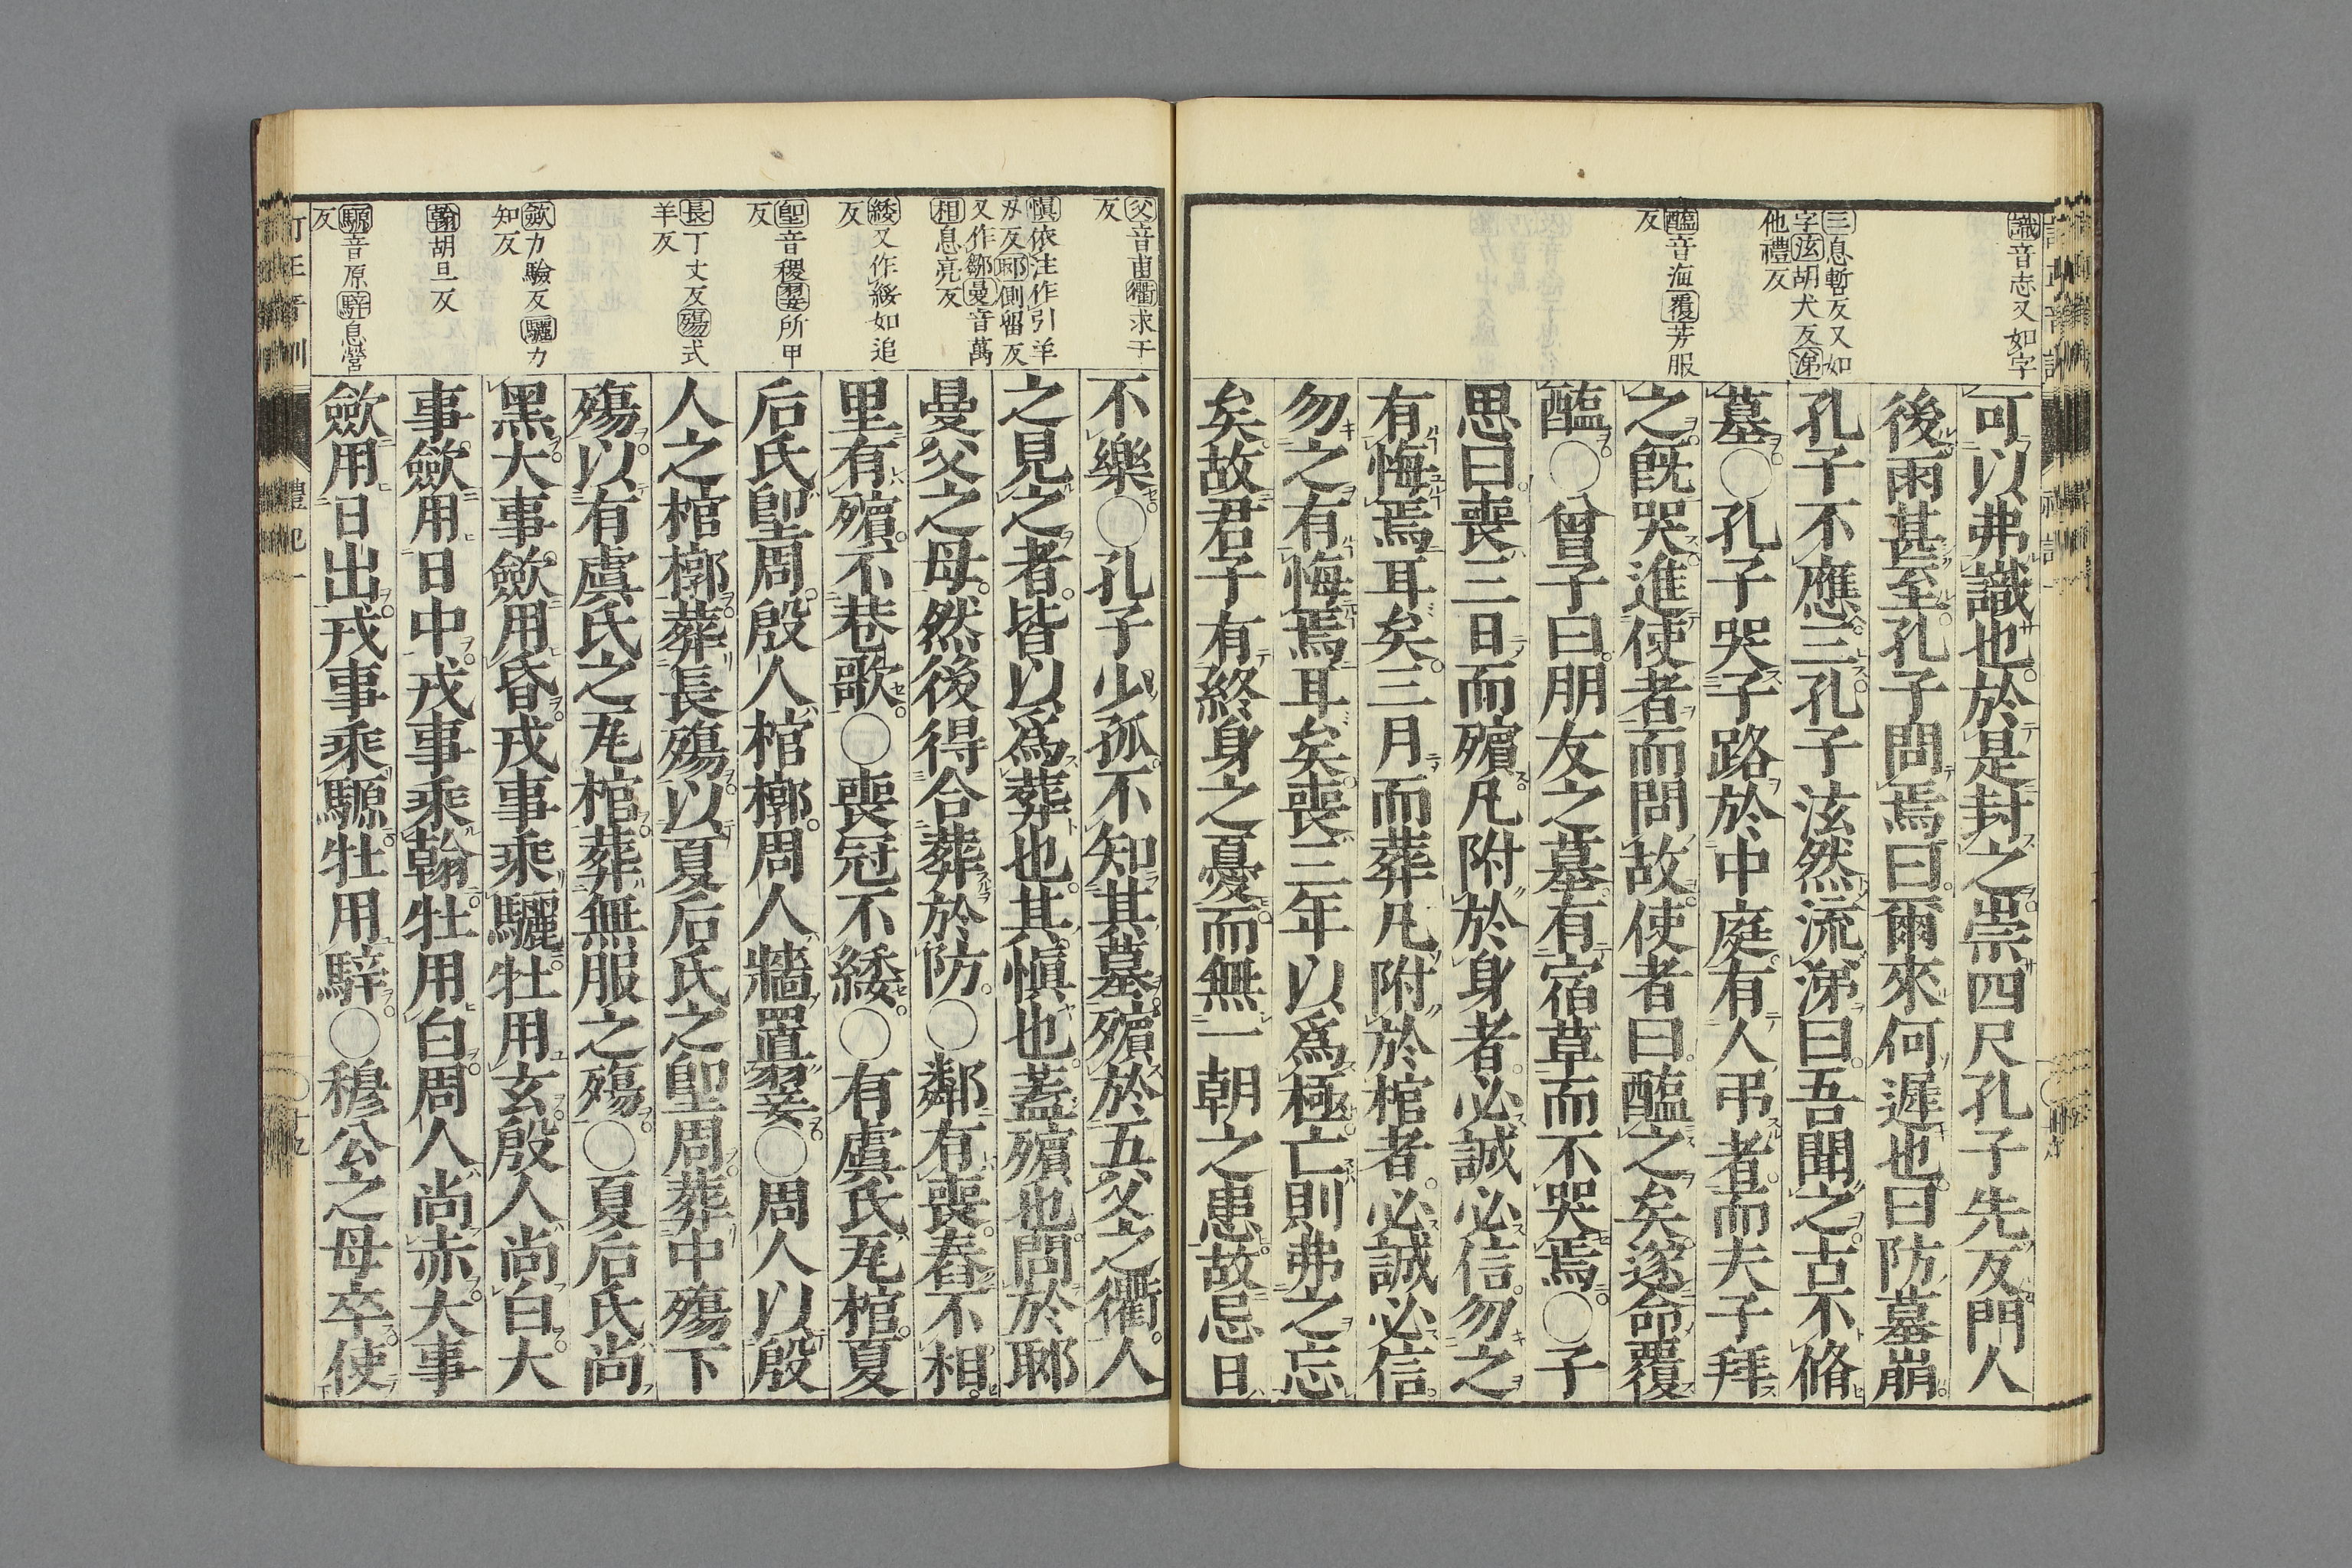 識音志又如字
三息暫反又如
字泫胡犬反涕
他禮反
醢音海覆芳服
反
可以弗識也於是封之崇四尺孔子先反門人
後雨甚至孔子問焉曰爾來何遲也曰防墓崩
孔子不應三孔子泫然流涕曰吾聞之古不脩
墓○孔子哭子路於中庭有人弔者而夫子拜
之旣哭進使者而問故使者曰醢之矣遂命覆
醢○曾子曰朋友之墓有宿草而不哭焉○子
思曰喪三日而殯凡附於身者必誠必信勿之
有悔焉耳矣三月而葬凡附於棺者必誠必信
勿之有悔焉耳矣喪三年以爲極亡則弗之忘
矣故君子有終身之憂而無一朝之患故忌日
父音甫衢求于
反
愼依注作引羊
刃反郰側留反
又作鄒曼音萬
相息亮反
緌又作綏如追
反
堲音稷翣所甲
反
長丁丈反殤式
羊反
斂力驗反驪力
知反
翰胡旦反
騵音原騂息營
反
不樂○孔子少孤不知其墓殯於五父之衢人
之見之者皆以爲葬也其愼也蓋殯也問於郰
曼父之母然後得合葬於防○鄰有喪舂不相
里有殯不巷歌○喪冠不緌○有虞氏瓦棺夏
后氏堲周殷人棺槨周人牆置翣○周人以殷
人之棺槨葬長殤以夏后氏之堲周葬中殤下
殤以有虞氏之瓦棺葬無服之殤○夏后氏尚
黑大事斂用昏戎事乘驪牡用玄殷人尚白大
事斂用日中戎事乘翰牡用白周人尚赤大事
斂用日出戎事乘騵牡用騂○穆公之母卒使